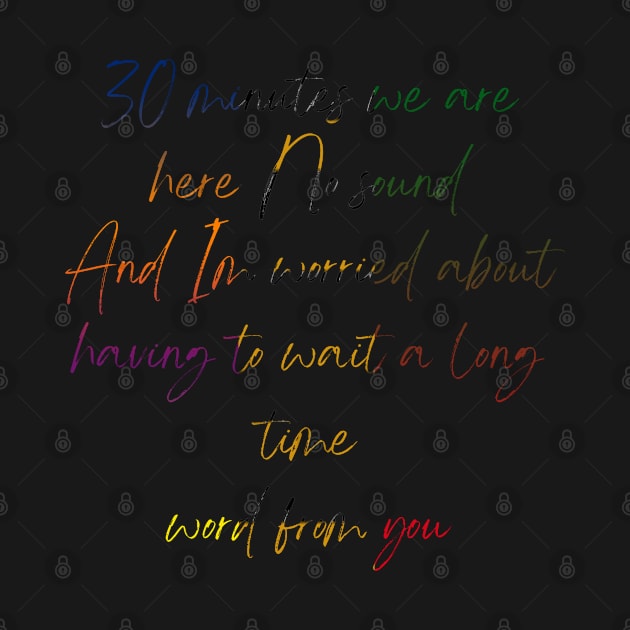 30 minutes we are
here No sound
And Im worried about
having to wait a long
time
word from you